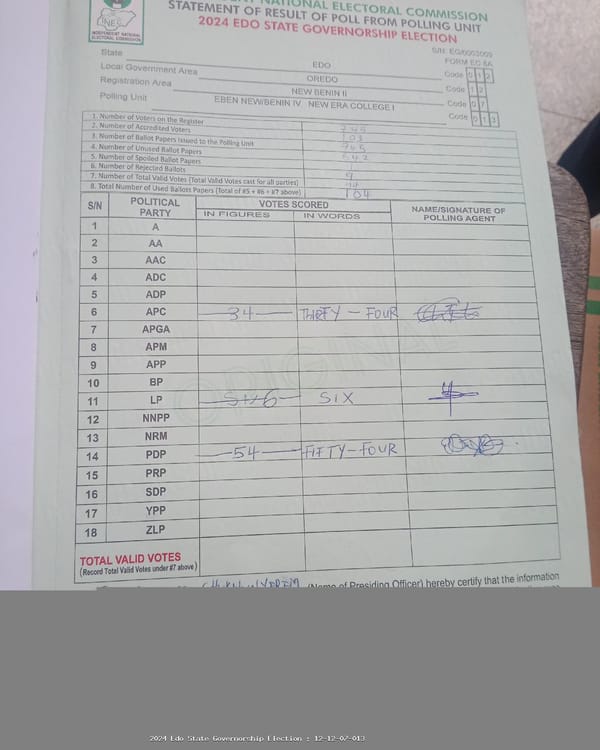 NATIONAL ELECTORAL COMMISSION
STATEMENT OF RESULT OF POLL FROM POLLING UNIT
2024 EDO STATE GOVERNORSHIP ELECTION
INEC
INDEPENDENT NATIONAL ELECTORAL COMMISSION
FORM EC 8A
State EDO
Local Government Area OREDO Code 0 1 2
Registration Area NEW BENIN II Code 1 2
Polling Unit EBEN NEW/BENIN IV NEW ERA COLLEGE I Code 0 7
Code 0 1 3
1. Number of Voters on the Register
2. Number of Accredited Voters
3. Number of Ballot Papers Issued to the Polling Unit
4. Number of Unused Ballot Papers
5. Number of Spoiled Ballot Papers
6. Number of Rejected Ballots
7. Number of Total Valid Votes (Total Valid Votes cast for all parties)
8. Total Number of Used Ballots Papers (Total of #5 + #6 + #7 above) 104
S/N POLITICAL PARTY VOTES SCORED NAME/SIGNATURE OF POLLING AGENT
IN FIGURES IN WORDS
1 A
2 AA
3 AAC
4 ADC
5 ADP
6 APC 34 THIRTY - FOUR
7 APGA
8 APM
9 APP
10 BP
11 LP 6 SIX
12 NNPP
13 NRM
14 PDP 54 FIFTY-FOUR
15 PRP
16 SDP
17 YPP
18 ZLP
ORIGINAL
TOTAL VALID VOTES
(Record Total Valid Votes under #7 above)
(Name of Presiding Officer) hereby certify that the information
2024 Edo State Governorship Election : 12-12-07-013